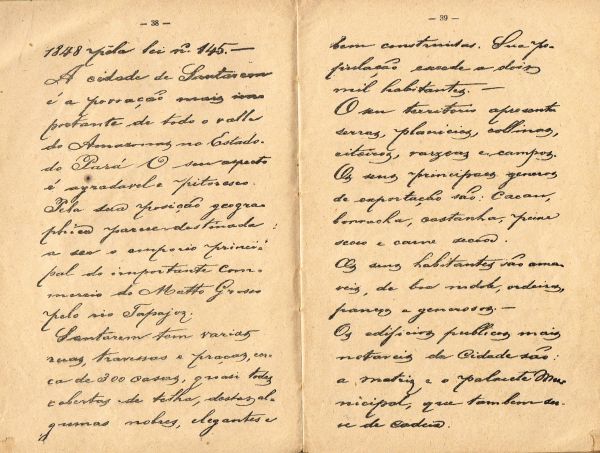 — 38 —
1848 pela lei n. 145. —
A cidade de Santarem
é a povoação mais im
portante de todo o valle
do Amazonas no Estado
do Pará O seu aspecto
é agradavel e pitoresco.
Pela sua posição geogra
phica parece destinada
a ser o emporio princi
pal do importante com-
mercio do Matto Grosso
pelo rio Tapajoz.
Santarem tem varias
ruas, travessas e praças, cer
ca de 300 casas, quasi todas
cobertas de telha, destas al-
gumas nobres, elegantes e
— 39 —
bem construidas. Sua po-
pulação excede a dois
mil habitantes. —
O seu territorio apresenta
serras, planicies, collinas,
oiteiros, varzeas e campos.
Os seus principaes generos
de exportação são: Cacau,
borracha, castanha, peixe
secco e carne secca.
Os seus habitantes são ama
veis, de boa indole, ordeiros,
francos e generosos. —
Os edificios publicos mais
notaveis da Cidade são:
a matriz e o palacete Mu
nicipal, que tambem ser
ve de cadeia.